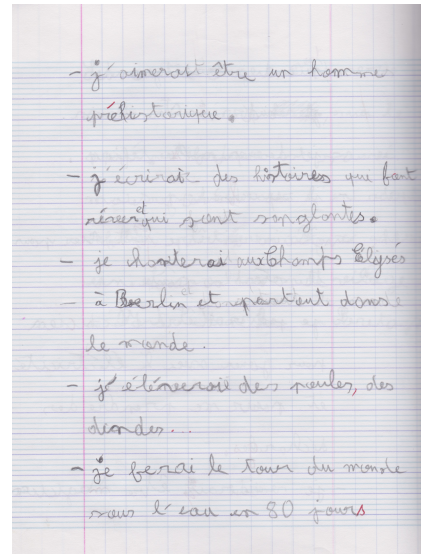 - j'aimerait être un homme
préhistorique.
- j'écrirai des histoires que font
rêver et qui sont sanglantes.
- je chanterai aux Champs Elysés
- à Berlin et partout dans
le monde.
- j'élèverait des poules, des
dindes...
- je ferai le tour du monde
sous l'eau en 80 jours